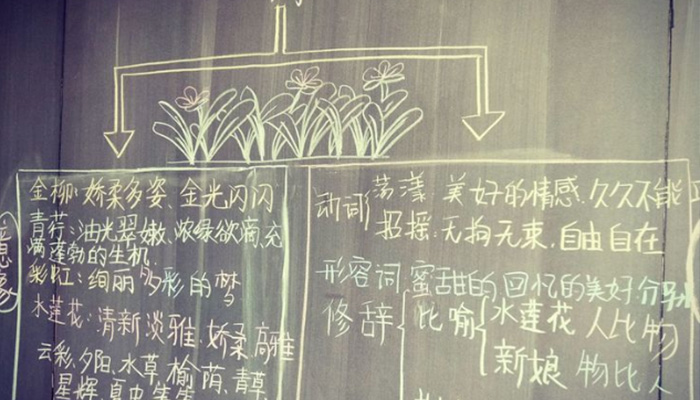 意象
金柳：娇柔多姿、金光闪闪
青荇：油光翠嫩、浓绿欲滴、充
满蓬勃的生机
彩虹：绚丽多彩的梦
水莲花：清新淡雅、娇柔、高雅
云彩、夕阳、水草、榆荫、青草
星辉、夏虫
动词 荡漾：美好的情感、久久不能
招摇：无拘无束、自由自在
形容词：蜜甜的、回忆的美好
修辞 比喻 水莲花 人比物
新娘 物比人